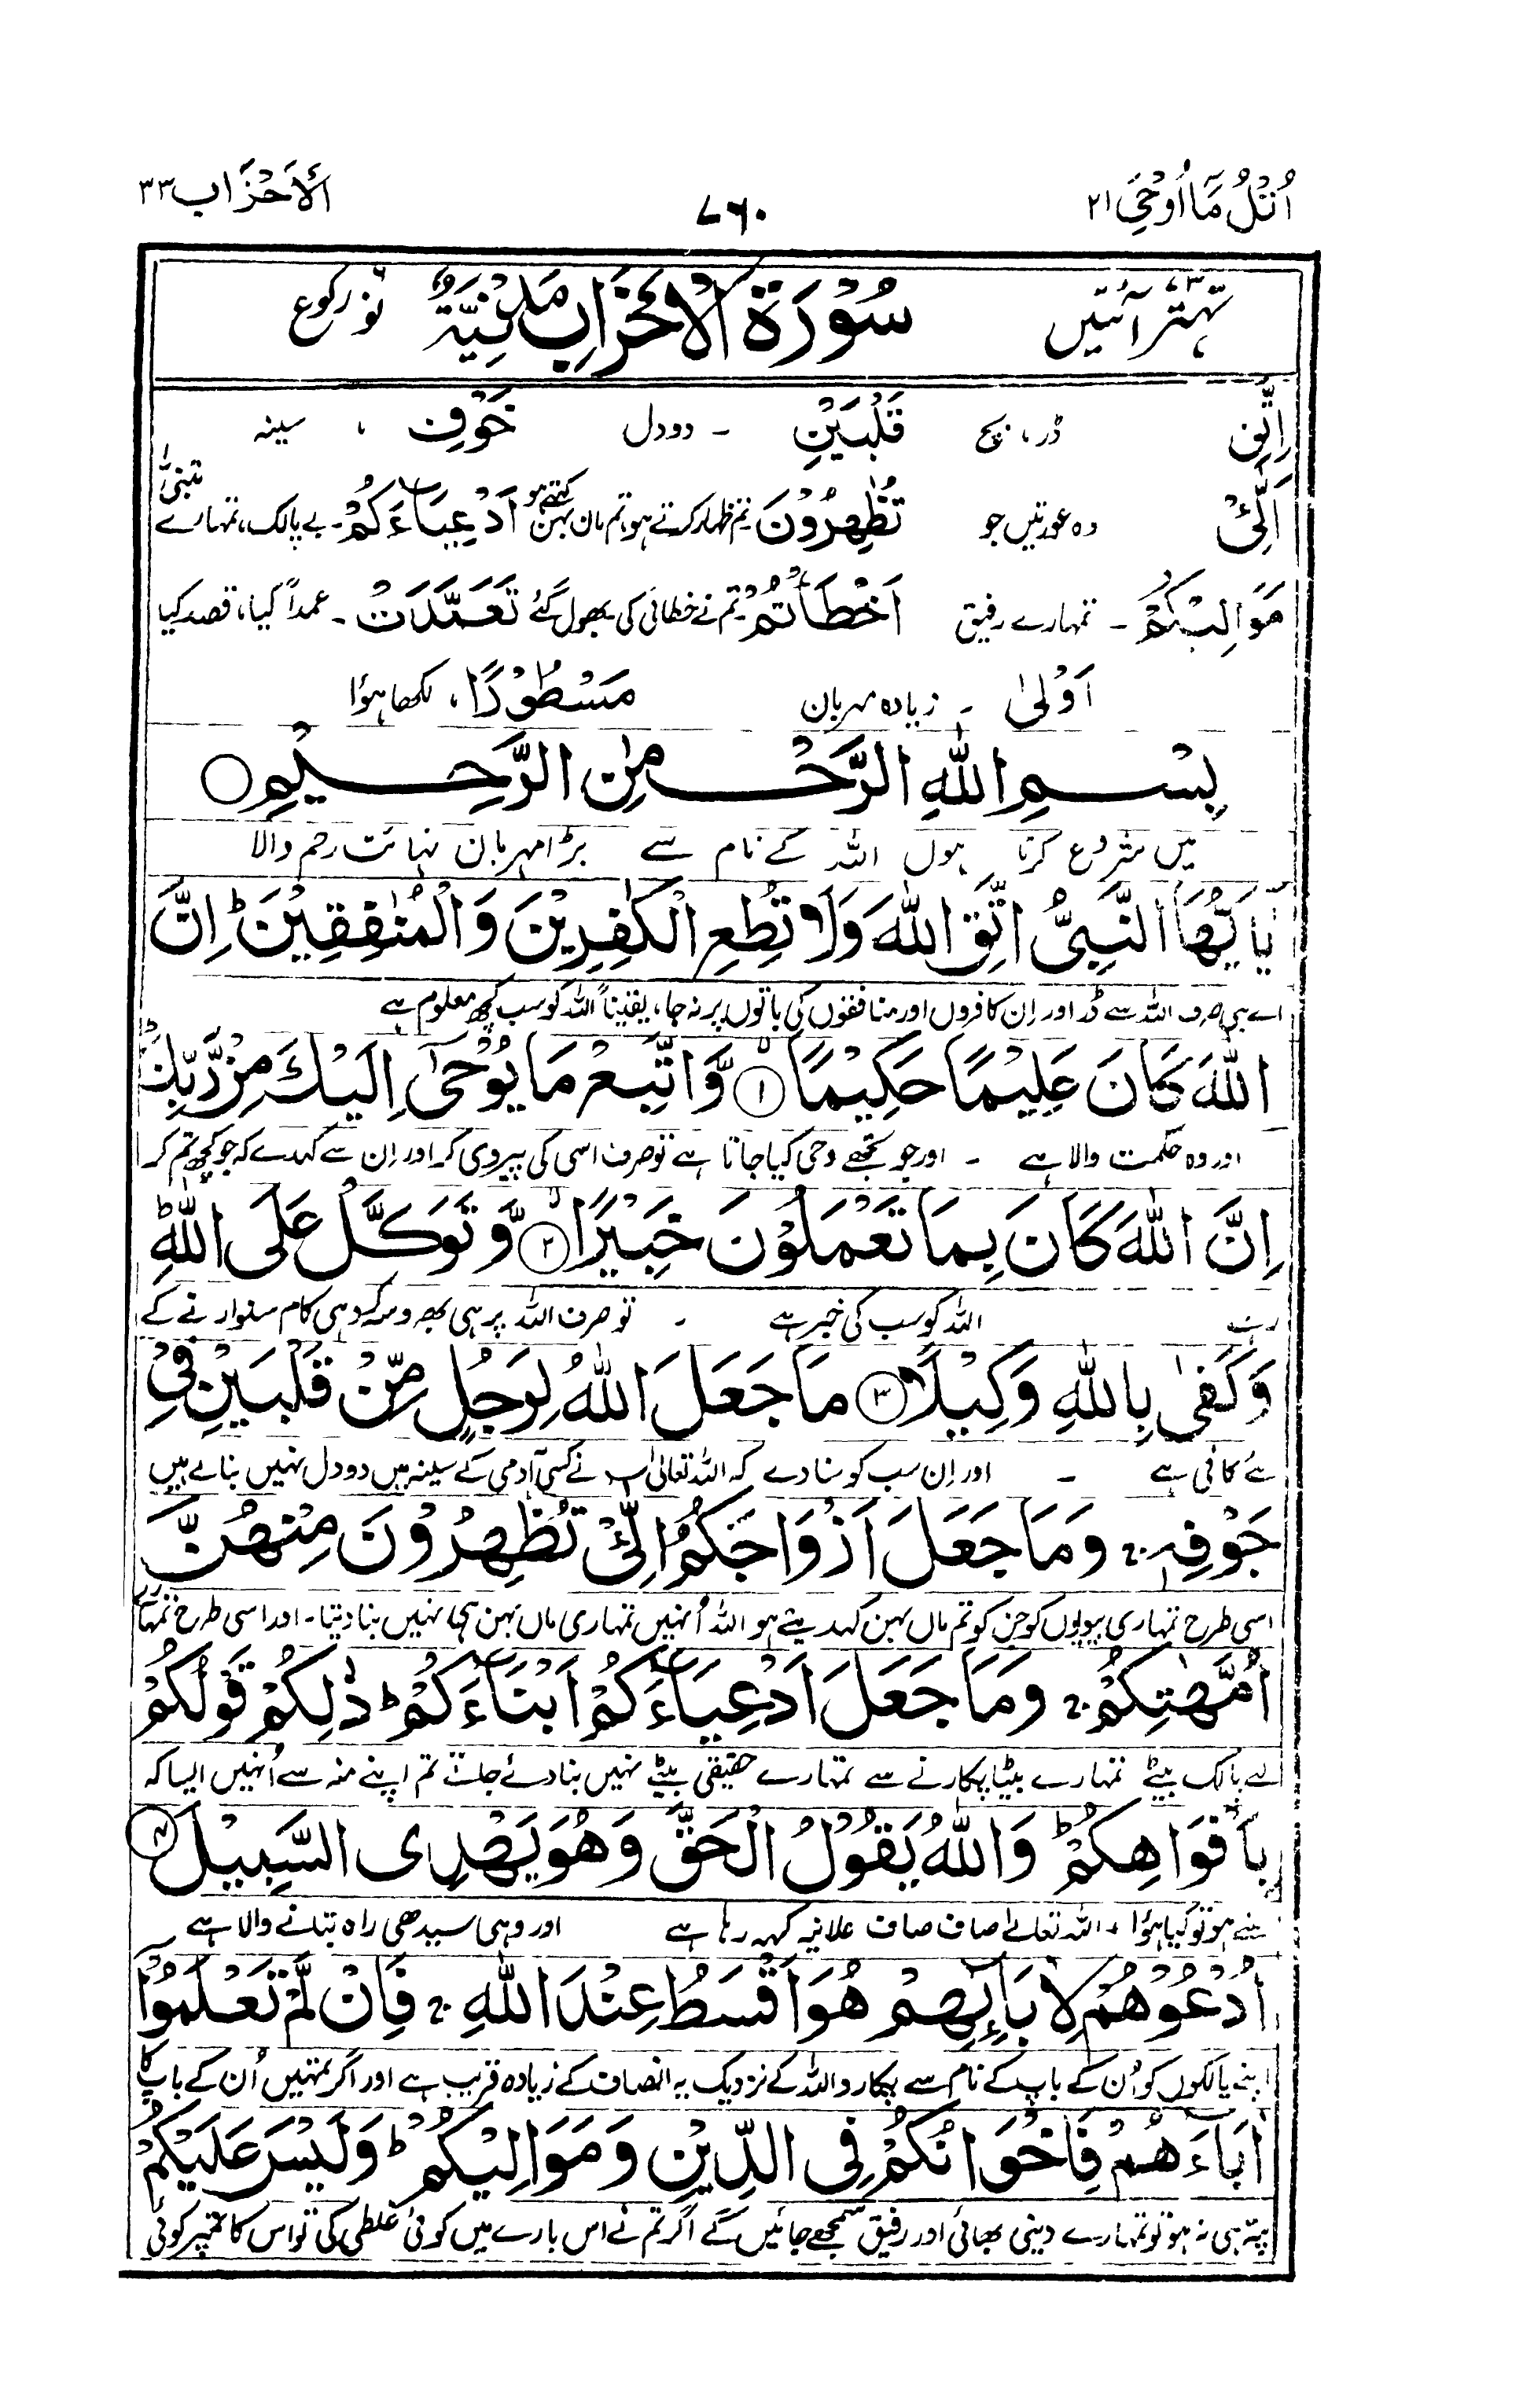 اُتْلُ مَآ اُوْحِیَ ۲۱
۷۶۰
اَلْاَحْزَاب ۳۳
۷۳ تہتر آئتیں
سُوْرَةُ الْاَحْزَابِ مَدَنِيَّةٌ
۹ نو رکوع
اِتَّقِ ڈر، بچ قَلْبَيْنِ - دو دل جَوْفِ ، سینہ
اَلّٰئِیْ وہ عورتیں جو تُظٰهِرُوْنَ تم ظہار کرتے ہو، تم ماں بہن کہتے ہو اَدْعِيَآءَكُمْ - لے پالک، تمہارے متبنیٰ
مَوَالِيْكُمْ - تمہارے رفیق اَخْطَاْتُمْ تم نے خطائی کی بھول گئے تَعَمَّدَتْ - عمداً کیا، قصد کیا
اَوْلٰى - زیادہ مہربان مَسْطُوْرًا ، لکھا ہؤا
بِسْمِ اللهِ الرَّحْمٰنِ الرَّحِيْمِ
میں شروع کرتا ہوں اللہ کے نام سے بڑا مہربان نہائت رحم والا
يٰاَيُّهَا النَّبِىُّ اتَّقِ اللهَ وَلَا تُطِعِ الْكٰفِرِيْنَ وَالْمُنٰفِقِيْنَ ؕ اِنَّ
اے نبی صرف اللہ سے ڈر اور اِن کافروں اور منافقوں کی باتوں پر نہ جا، یقیناً اللہ کو سب کچھ معلوم ہے
اللهَ كَانَ عَلِيْمًا حَكِيْمًا ۙ ۱ وَّاتَّبِعْ مَا يُوْحٰٓى اِلَيْكَ مِنْ رَّبِّكَ ؕ
اور وہ حکمت والا ہے - اور جو تجھے وحی کیا جاتا ہے تو صرف اسی کی پیروی کر اور اِن سے کہدے کہ جو کچھ تم کر
اِنَّ اللهَ كَانَ بِمَا تَعْمَلُوْنَ خَبِيْرًا ۙ ۲ وَّتَوَكَّلْ عَلَى اللهِ ؕ
رہے اللہ کو سب کی خبر ہے - تو صرف اللہ پر ہی بھروسہ کہ وہی کام سنوارنے کے
وَكَفٰى بِاللهِ وَكِيْلًا ۳ مَا جَعَلَ اللهُ لِرَجُلٍ مِّنْ قَلْبَيْنِ فِىْ
لئے کافی ہے - اور اِن سب کو سنا دے کہ اللہ تعالیٰ نے کسی آدمی کے سینہ میں دو دل نہیں بنائے ہیں
جَوْفِهٖ ۚ وَمَا جَعَلَ اَزْوَاجَكُمُ الّٰٓئِْ تُظٰهِرُوْنَ مِنْهُنَّ
اسی طرح تمہاری بیویوں کو جن کو تم ماں بہن کہدیتے ہو اللہ اُنہیں تمہاری ماں بہن ہی نہیں بنا دیتا - اور اسی طرح تمہارے
اُمَّهٰتِكُمْ ۚ وَمَا جَعَلَ اَدْعِيَآءَكُمْ اَبْنَآءَكُمْ ؕ ذٰلِكُمْ قَوْلُكُمْ
لے پالک بیٹے تمہارے بیٹا پکارنے سے تمہارے حقیقی بیٹے نہیں بنا دئے جاتے تم اپنے منہ سے اُنہیں ایسا کہ
بِاَفْوَاهِكُمْ ؕ وَاللهُ يَقُوْلُ الْحَقَّ وَهُوَ يَهْدِى السَّبِيْلَ ۴
لیتے ہو تو کیا ہؤا ، اللہ تعالےٰ صاف صاف علانیہ کہہ رہا ہے اور وہی سیدھی راہ بتانے والا ہے
اُدْعُوْهُمْ لِاٰبَآئِهِمْ هُوَ اَقْسَطُ عِنْدَ اللهِ ۚ فَاِنْ لَّمْ تَعْلَمُوْٓا
اپنے پالکوں کو اُن کے باپ کے نام سے پکارو اللہ کے نزدیک یہ انصاف کے زیادہ قریب ہے اور اگر تمہیں اُن کے باپ کا
اٰبَآءَهُمْ فَاِخْوَانُكُمْ فِى الدِّيْنِ وَمَوَالِيْكُمْ ؕ وَلَيْسَ عَلَيْكُمْ
پتہ ہی نہ ہو تو تمہارے دینی بھائی اور رفیق سمجھے جائیں گے اگر تم نے اس بارے میں کوئی غلطی کی تو اس کا تم پر کوئی